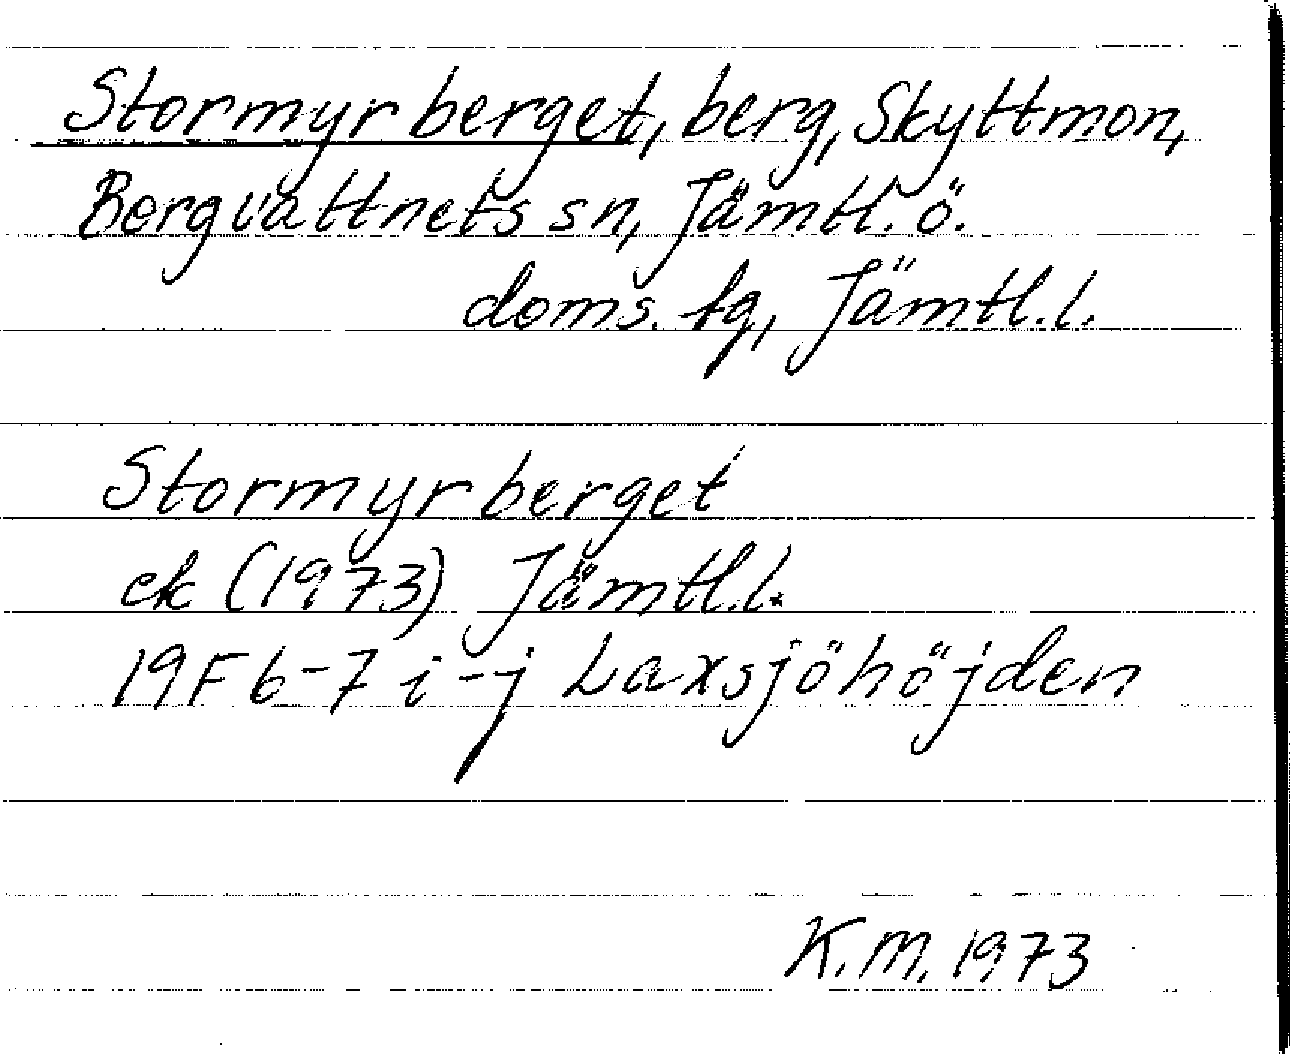 Stormyrberget, berg, Skyttmon,
Bergvattnets sn, Jämtl. ö.
doms. fg, Jämtl.l.
Stormyrberget
ek (1973) Jämtl.l.
19F 6-7 i-j Laxsjöhöjden
K.M. 1973